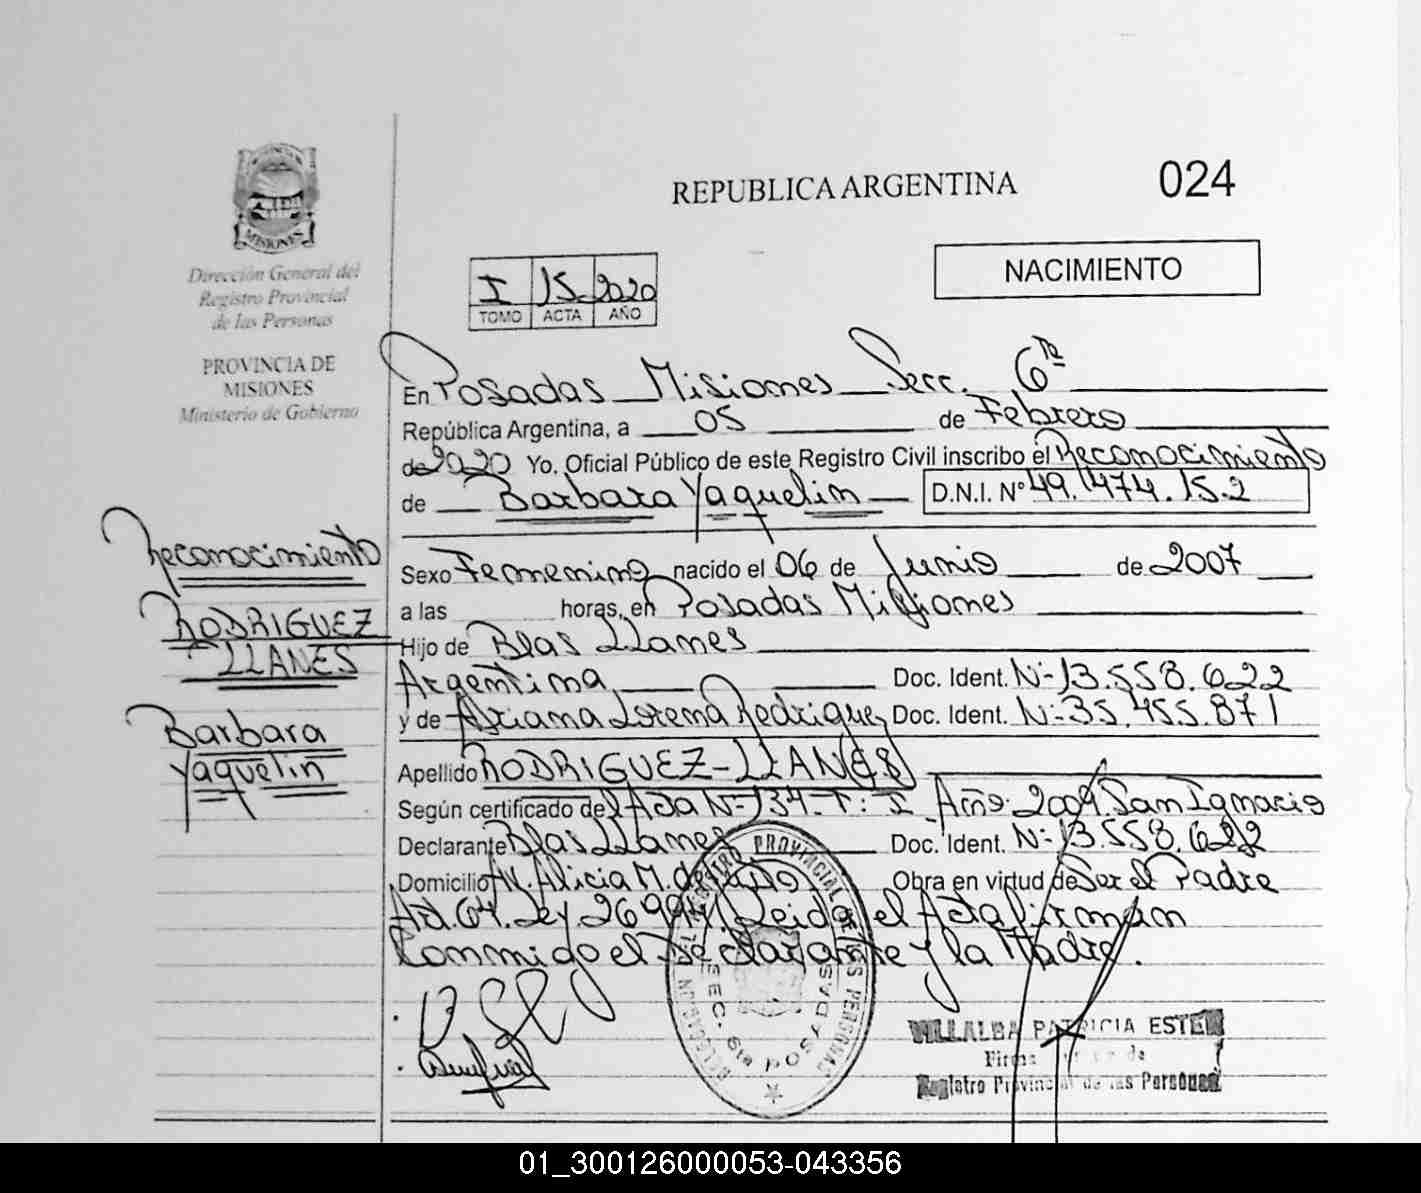 REPUBLICA ARGENTINA
024
MISIONES
Dirección General del
Registro Provincial
de las Personas
PROVINCIA DE
MISIONES
Ministerio de Gobierno
I 15 2020
TOMO ACTA AÑO
NACIMIENTO
En Posadas Misiones Secc. 6ta
República Argentina, a 05 de Febrero
de 2020 Yo, Oficial Público de este Registro Civil inscribo el Reconocimiento
de Barbara Yaquelin D.N.I. Nº 49.474.152
Reconocimiento
RODRIGUEZ
LLANES
Barbara
Yaquelin
Sexo Femenino nacido el 06 de Junio de 2007
a las horas, en Posadas Misiones
Hijo de Blas Llanes
Argentina Doc. Ident. Nº 13.558.622
y de Adriana Lorena Rodriguez Doc. Ident. Nº 35.455.871
Apellido RODRIGUEZ-LLANES
Según certificado del Acta Nº 134-T: I Año: 2009. San Ignacio
Declarante Blas Llanes Doc. Ident. Nº 13.558.622
Domicilio Av. Alicia M. de Justo Obra en virtud de Ser el Padre
Art. 64. Ley 26.994. Leida el Acta firman
Conmigo el Declarante y la Madre.
DELEGACION DEL REGISTRO PROVINCIAL DE LAS PERSONAS
SEC. 6ta POSADAS
VILLALBA PATRICIA ESTER
Registro Provincial de las Personas
01_300126000053-043356